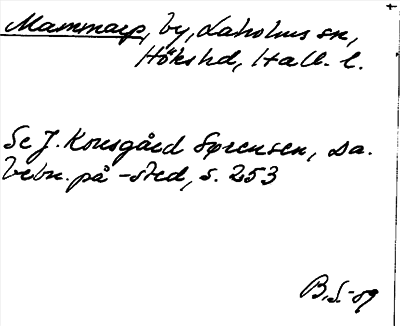 Mammarp, by, Laholms sn,
Hökshd, Hall. l.
Se J. Kousgård Sørensen, Da.
bebn. på -sted, s. 253
B.S.-89